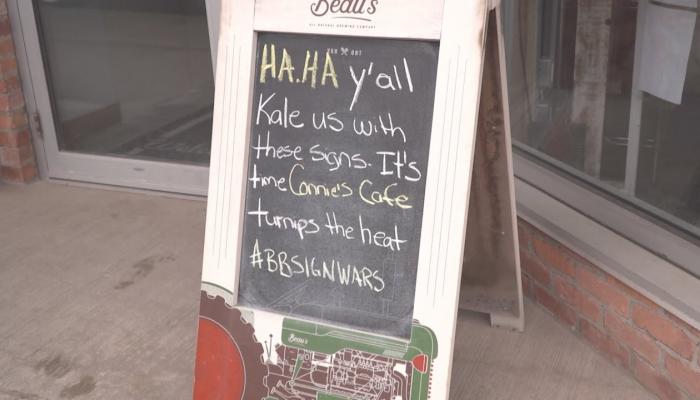 Beau's
ALL NATURAL BREWING COMPANY
HA.HA y'all
Kale us with
these signs. It's
time Connie's Cafe
turnips the heat
#BBSIGNWARS
Beau's